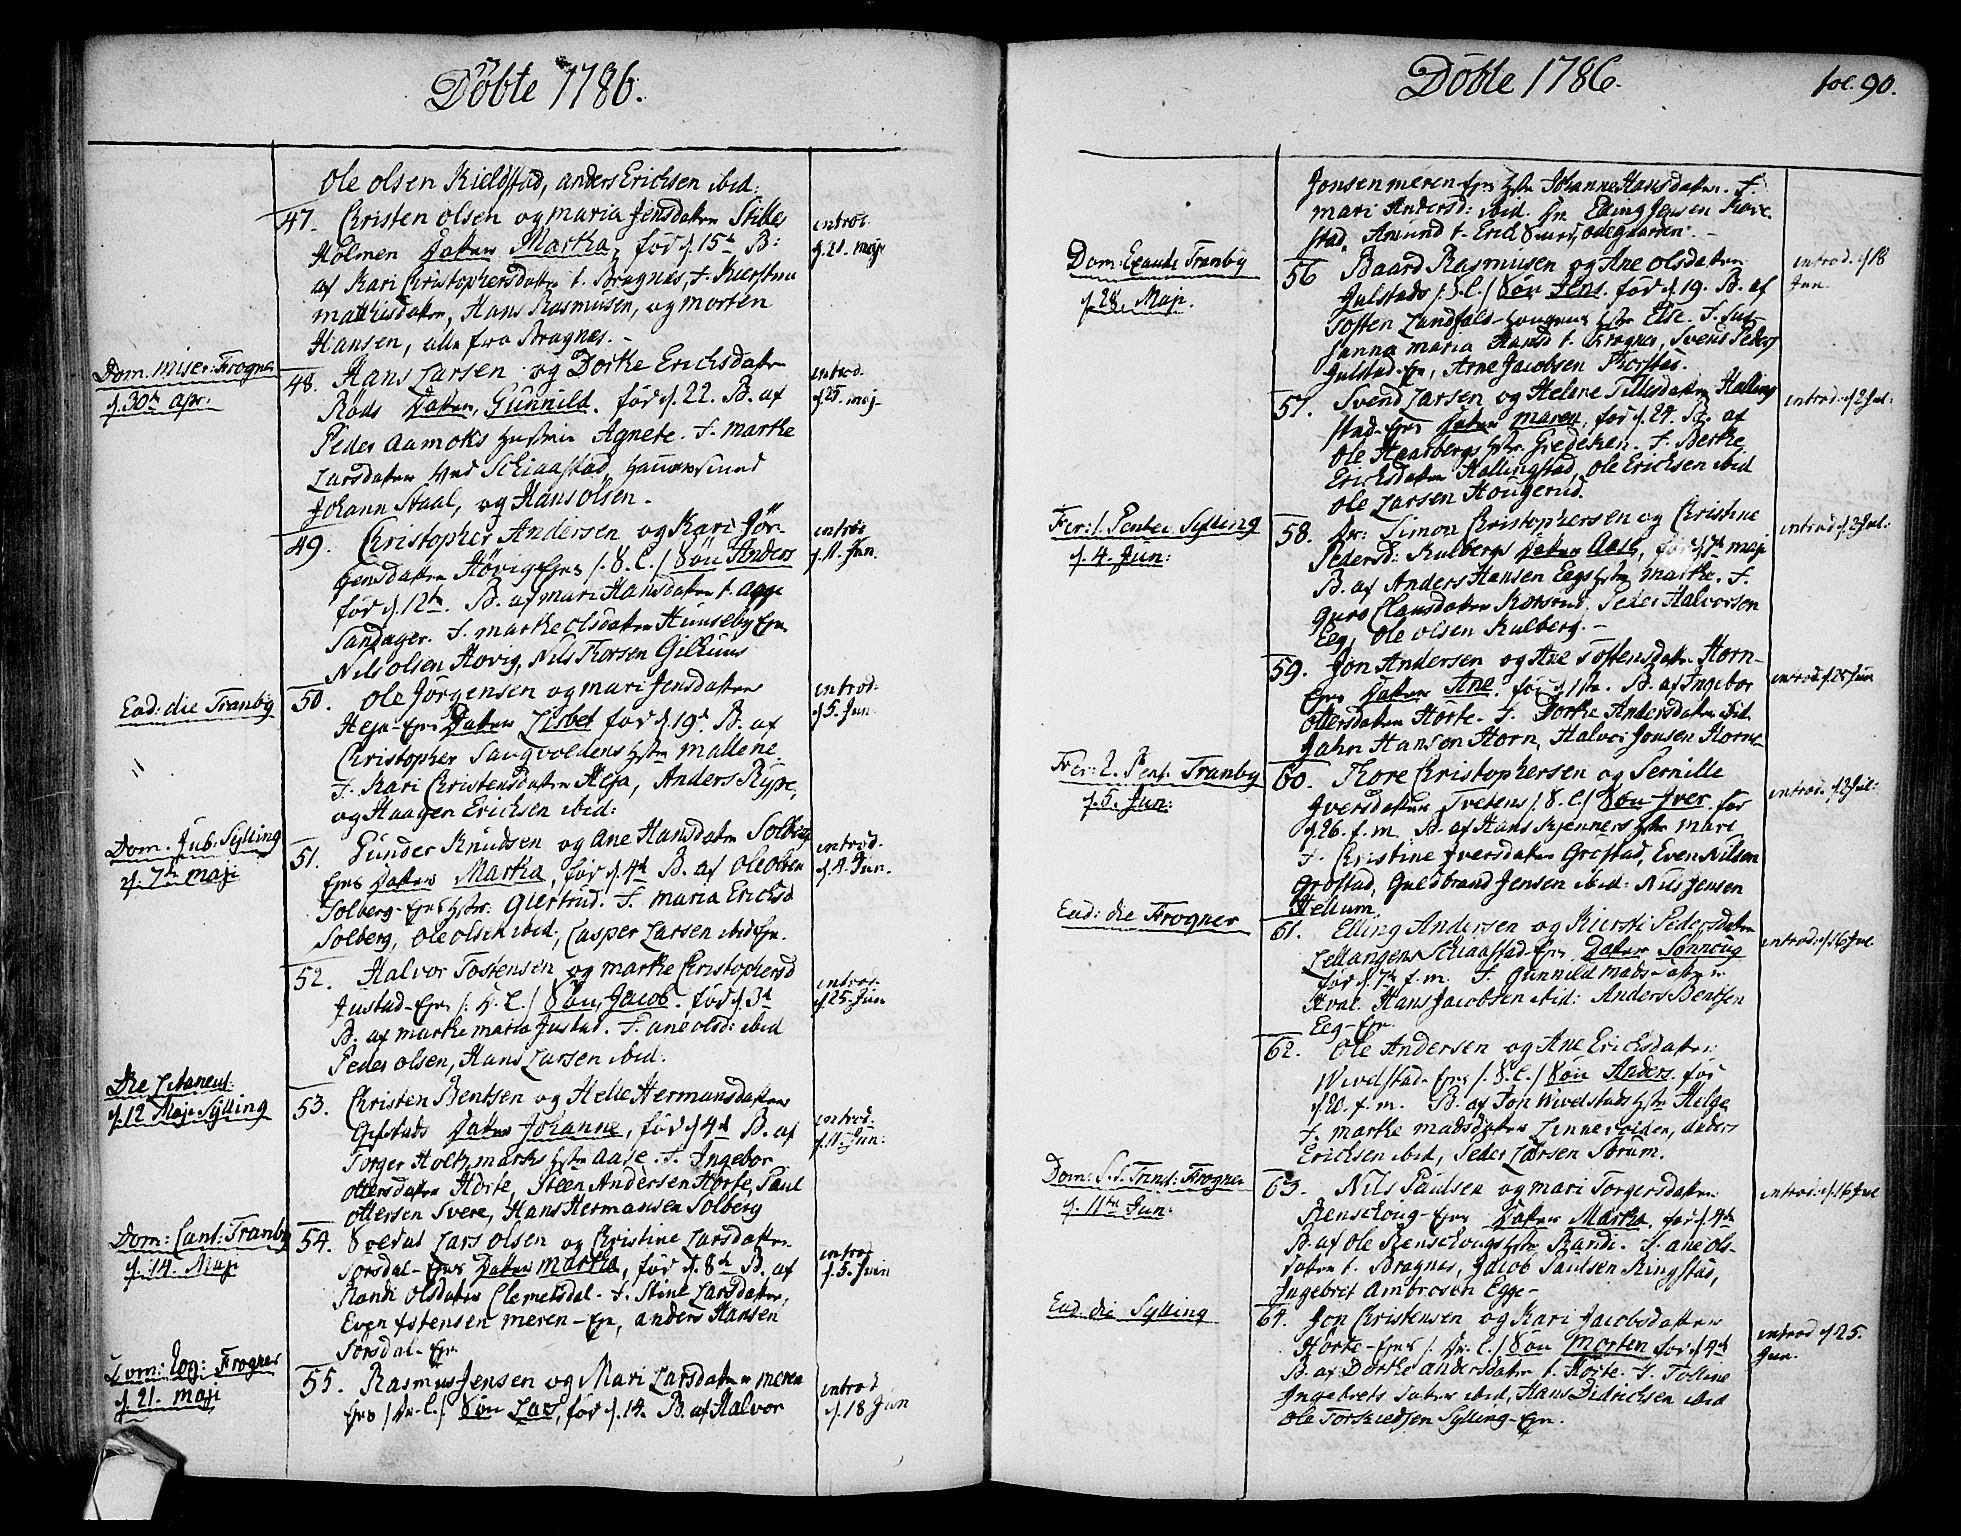 Döbte 1786.
Ole Olsen Kieldstad, Anders Erichsen ibid:
47. Christen Olsen og Maria Jensdatter Stille
Holmen Datter Martha, fød d. 15de B:
af Kari Christophersdatter t. Bragnæs, F. Kierstine
Mathisdatter, Hans Rasmusen, og Morten
Hansen, alle fra Bragnæs. -
introd
d. 21. maji
Dom: Miser: Frogner
d. 30te apr.
48. Hans Larsen og Dorthe Erichsdatter
Røds Datter, Gunnild. fød d. 22. B. af
Peder Aamoths Hustrue Agnete. F. Marthe
Larsdatter ved Schiaastad,
Johann Staal, og Hans Olsen.
introd.
d. 25. maj.
49. Christopher Andersen og Kari Jør-
gensdatter Høvig Ejes /: S. C. / Søn Anders
fød d. 12te. B. af Mari Hansdatter t. Aage
Sandager. F. Marthe Olsdatter Humseby Eje
Nils Olsen Høvig, Nils Thorsen Gilhuus
introd
d. 11. Jun.
Ead: die Tranby
50. Ole Jörgensen og Mari Jensdatter
Heja-Ejes Datter Lisbet fød d. 19de B. af
Christopher Saugvoldens Hstr Mallene
F. Kari Christensdatter Heja, Anders Rype,
og Haagen Erichsen ibid:
introd:
d. 5. Jun.
Dom. Jub. Sylling
d. 7de maji
51. Gunder Knudsen og Ane Hansdatter Solberg
Ejes Datter Martha, fød d. 4de B. af Ole Olsen
Solberg-Ejes Hstr: Giertrud. F. Maria Ericksd
Solberg, Ole Olsen ibid, Casper Larsen ibid Eje.
introd.
d. 4. Jun.
52. Halvor Tostensen og Marthe Christophersd
Justad-Ejes /: Dr. C. / Søn, Jacob. fød d. 3de
B. af Marthe Maria Justad. F. Ane Olsd: ibid
Peder Olsen, Hans Larsen ibid.
introd.
d. 25. Jun
Die Litaneut:
d. 12 Maji Sylling
53. Christen Bentsen og Helle Hermansdatter
Gifstads Datter Johanne, fød d. 4de B. af
Torger Holtzmarks Hstr Aase. F. Ingebor
Ottersdatter Horte, Steen Andersen Horte, Paul
Ottersen Svere, Hans Hermansen Solberg
introd.
d. 11. Jun:
Dom: Cant: Tranby
d. 14. Maji
54. Soldat Lars Olsen og Christine Larsdatter
Sørsdal-Ejes Datter Martha, fød d. 8de B. af
Randi Olsdatter Clemetsdal. F. Stine Larsdatter,
Even Estensen Meren-Eje, Anders Hansen
Sørsdal-Eje
introd
d. 5. Juin
Dom: Rog: Frogner
d. 21. maji
55. Rasmus Jensen og Mari Larsdatter Meren
Ejes / Dr. C. / Søn Lars, fød d. 14. B. af Halvor
introd
d. 18 Jun
Döbte 1786.
fol. 90.
Jonsen Meren-Ejes Hstr Johanne Hansdatter. F.
Mari Andersd: ibid. Dr. Elling Jensen Trove-
stad, Amund t. Erich Odegaarden. -
Dom: Exaudi Tranby
d. 28. Maji.
56 Baard Rasmusen og Ane Olsdatter
Julstads /: S. C. / Søn Jens. fød d. 19. B. af
Tosten Landfald-Hougens Hstr Else. F. Su-
sanna Maria Hansd t. Bragnæs, Svend Peders
Julstad-Eje, Arne Jacobsen Thorstad.
introd. d. 18
Jun.
57. Svend Larsen og Helene Tillesdatter Halling
stad-Ejes Datter Maren, fød d. 24. B. af
Ole Haarbergs Hstr. Gredeken. F. Berthe
Ericksdatter Hallingstad, Ole Ericksen ibid
Ole Larsen Hougerud.
introd. d. 2 Jul:
Fer: 1. Pentec Sylling
d. 4. Jun:
58. Dr: Simon Christophersen og Christine
Pedersd: Kulbergs Datter Aase, fød d. 7de maji
B. af Anders Hansen Eegs Hstr Marthe. F.
Guro Clausdatter, Peder Halvorsen
Eeg, Ole Olsen Kulberg. -
introd d. 2 Jul:
59. Jon Andersen og Ane Tostensdatter Horn-
Ejes Datter Ane. fød d. 1ste. B. af Ingebor
Ottersdatter Horte. F. Dorthe Andersdatter ibid
Jahn Hansen Horn, Halvor Jonsen Horns-
introd d. 25 Jun
Fer: 2. Pent. Tranby
d. 5. Jun:
60. Thore Christophersen og Pernille
Iversdatter Tvetens /: S. C. / Søn Iver. fød
d. 26. f. m. B. af Hans Kjenners Hstr Mari
F. Christine Iversdatter Grøstad, Even Nilsen
Grøstad, Guldbrand Jensen ibid: Nils Jensen
Hellum.
introd. d. 2 Jul:
Ead: die Frogner
61. Elling Andersen og Kiersti Pedersdatter
Lellangens Schiaastad-Ejes Datter Sønnoug
fød d. 7de f. m. F. Gunnild Madsdatter
Hval. Hans Jacobsen ibid: Anders Bentsen
Eeg-Eje
introd: d. 16 Jul
62. Ole Andersen og Ane Ericksdatter:
Wivelstad-Ejes /: S. C. / Søn Anders. fød
d. 20. f. m. B. af Jon Wivelstads Hstr Helge
F. Marthe Madsdatter Linnesvolden, Anders
Ericksen ibid, Peder Larsen Sørum.
Dom: S. S. Trinit: Frogner
d. 11te Jun:
63. Nils Paulsen og Mari Torgersdatter
Renschoug-Ejes Datter Martha, fød d. 4de
B. af Ole Renschougs Hstr Randi. F. Ane Ols-
datter t. Bragnæs, Jacob Paulsen Ringstad,
Ingebret Ambrosen Egge-
introd: d. 16 Jul
Ead: die Sylling
64. Jon Christensen og Kari Jacobsdatter
Horte-Ejes /: Dr. C. / Søn Morten fød d. 4de
B. af Dorthe Andersdatter t. Horte. F. Tolline
Ingebretsdatter ibid, Hans Didrichsen ibid
Ole Torstiedsen Sylling-Eje.
introd d. 25.
Jun.